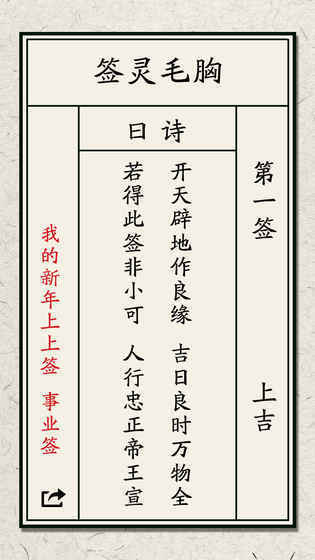 签灵毛胸
日诗
第一签
上吉
开天辟地作良缘 吉日良时万物全
若得此签非小可 人行忠正帝王宣
我的新年上上签 事业签